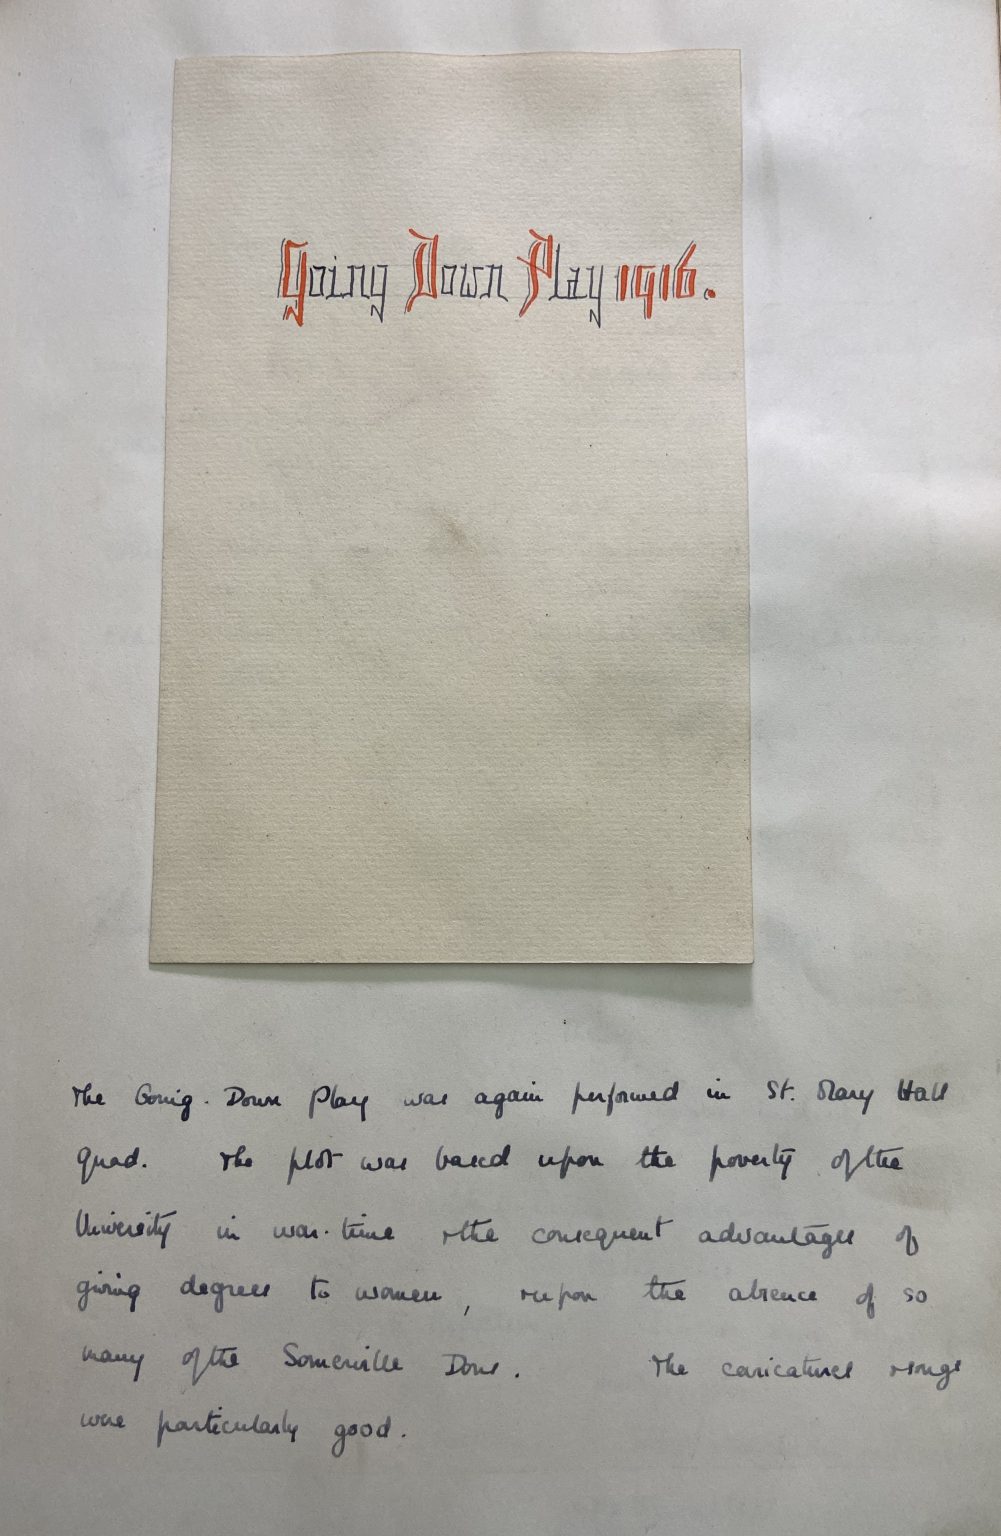 Going Down Play 1916.
The Going-Down Play was again performed in St. Mary Hall
Quad. The plot was based upon the poverty of the
University in war-time & the consequent advantages of
giving degrees to women, & upon the absence of so
many of the Somerville Dons. The caricatures & songs
were particularly good.